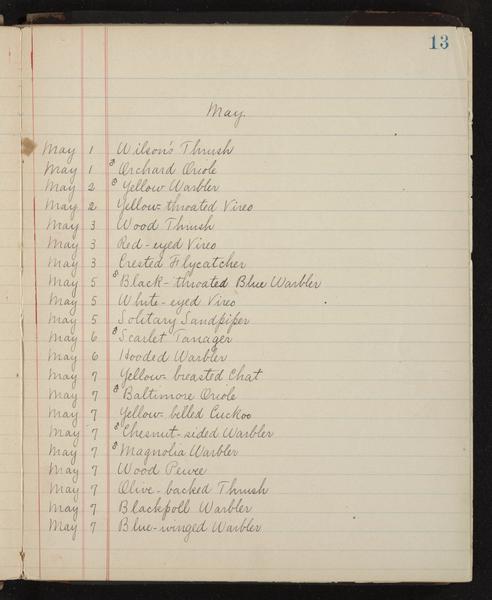 13
May.
May 1 Wilson's Thrush
May 1 ♂ Orchard Oriole
May 2 ♂ Yellow Warbler
May 2 Yellow-throated Vireo
May 3 Wood Thrush
May 3 Red-eyed Vireo
May 3 Crested Flycatcher
May 5 ♂ Black-throated Blue Warbler
May 5 White-eyed Vireo
May 5 Solitary Sandpiper
May 6 ♂ Scarlet Tanager
May 6 Hooded Warbler
May 7 Yellow-breasted Chat
May 7 ♂ Baltimore Oriole
May 7 Yellow-billed Cuckoo
May 7 ♂ Chesnut-sided Warbler
May 7 ♂ Magnolia Warbler
May 7 Wood Pewee
May 7 Olive-backed Thrush
May 7 Blackpoll Warbler
May 7 Blue-winged Warbler